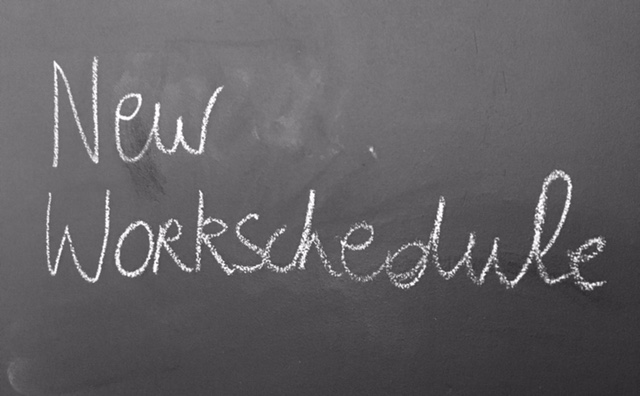 New
Workschedule